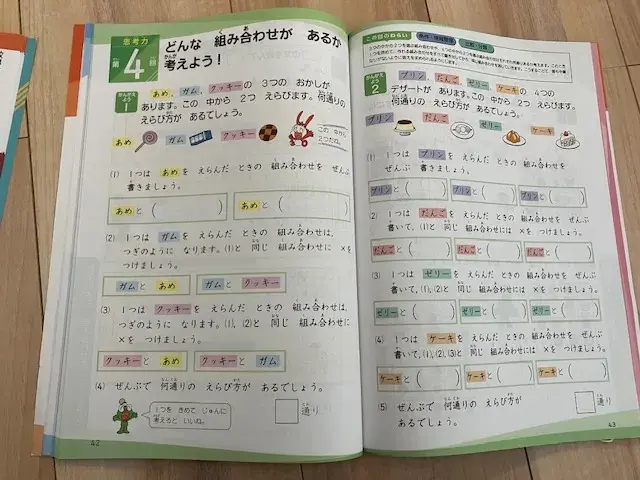 思考力
第4回
どんな 組み合わせが あるか
考えよう!
かんがえよう
1
あめ、ガム、クッキーの 3つの おかしが
あります。この 中から 2つ えらびます。何通りの
えらび方が あるでしょう。
あめ ガム クッキー
この 中から
2つだね。
(1) 1つは あめを えらんだ ときの 組み合わせを ぜんぶ
書きましょう。
あめと( ) あめと( )
(2) 1つは ガムを えらんだ ときの 組み合わせは、
つぎのように なります。(1)と 同じ 組み合わせに ×を
つけましょう。
ガムと あめ ガムと クッキー
(3) 1つは クッキーを えらんだ ときの 組み合わせは、
つぎのように なります。(1)、(2)と 同じ 組み合わせに
×を つけましょう。
クッキーと あめ クッキーと ガム
(4) ぜんぶで 何通りの えらび方が あるでしょう。
1つを きめて じゅんに
考えると いいね。
通り
42
この回のねらい
かんがえよう
2
プリン、だんご、ゼリー、ケーキの 4つの
デザートが あります。この 中から 2つ えらびます。何通りの
えらび方が あるでしょう。
プリン だんご ゼリー ケーキ
(1) 1つは プリンを えらんだ ときの 組み合わせを
ぜんぶ 書きましょう。
プリンと( ) プリンと( ) プリンと( )
(2) 1つは だんごを えらんだ ときの 組み合わせを ぜんぶ
書いて、(1)と 同じ 組み合わせには ×を つけましょう。
だんごと( ) だんごと( ) だんごと( )
(3) 1つは ゼリーを えらんだ ときの 組み合わせを ぜんぶ
書いて、(1)、(2)と 同じ 組み合わせには ×を つけましょう。
ゼリーと( ) ゼリーと( ) ゼリーと( )
(4) 1つは ケーキを えらんだ ときの 組み合わせを ぜんぶ
書いて、(1)、(2)、(3)と 同じ 組み合わせには ×を つけましょう。
ケーキと( ) ケーキと( ) ケーキと( )
(5) ぜんぶで 何通りの えらび方が
あるでしょう。
通り
43